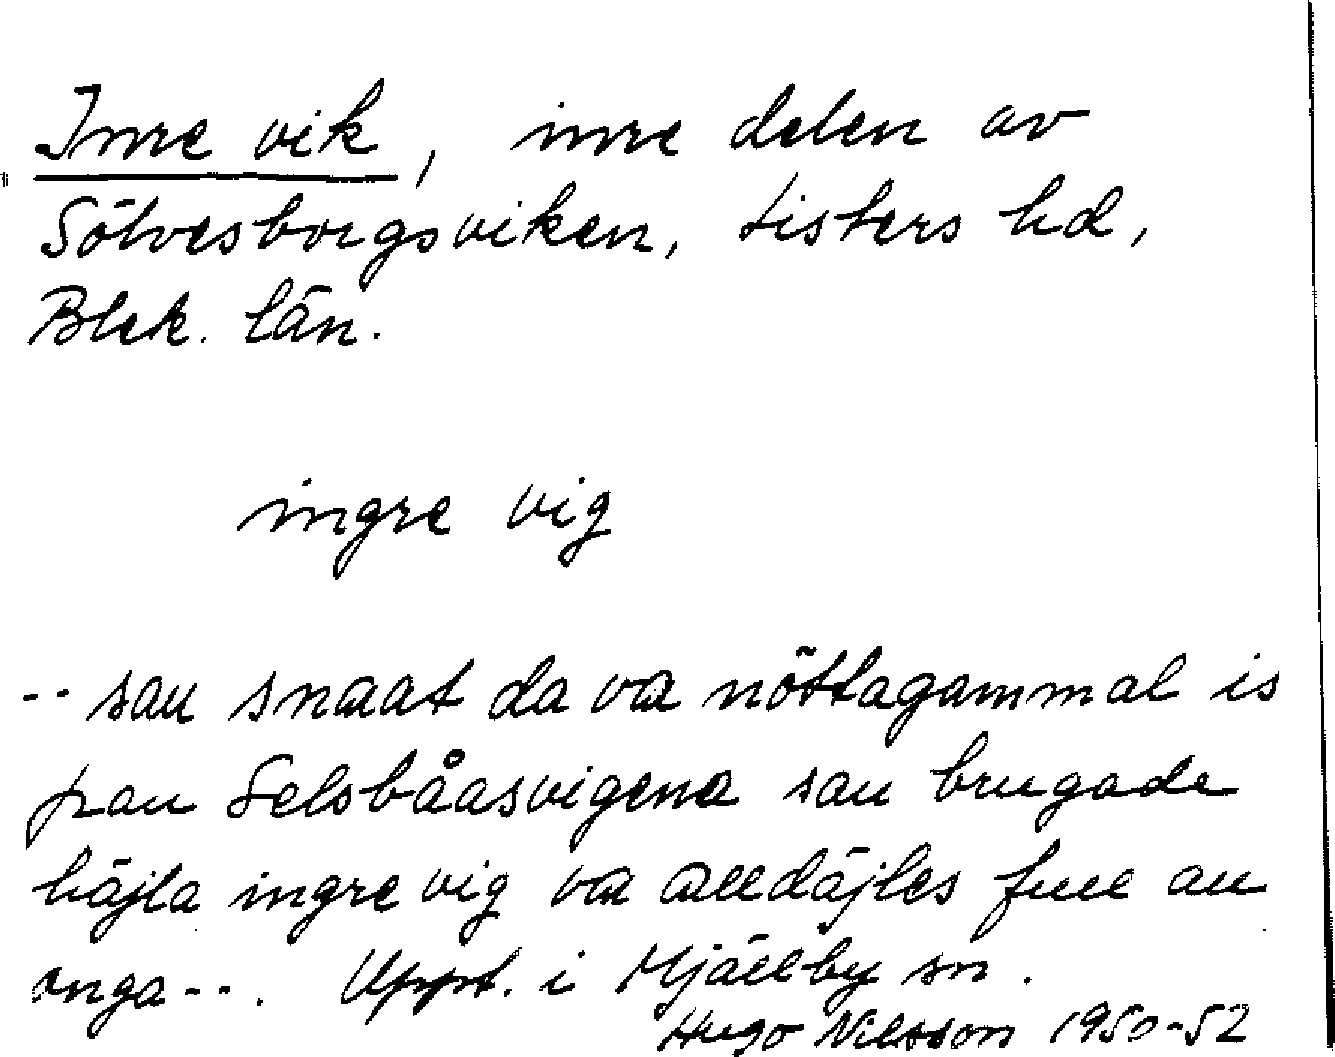 Inre vik, inre delen av
Sölvesborgsviken, Listers hd,
Blek. län.
ingre vig
-- sau snaat da va nöttagammal is
pau Selsbåasvigena sau brugade
häjla ingre vig va alldäjles full au
onga--. Uppt. i Mjällby sn.
Hugo Nilsson 1950-52